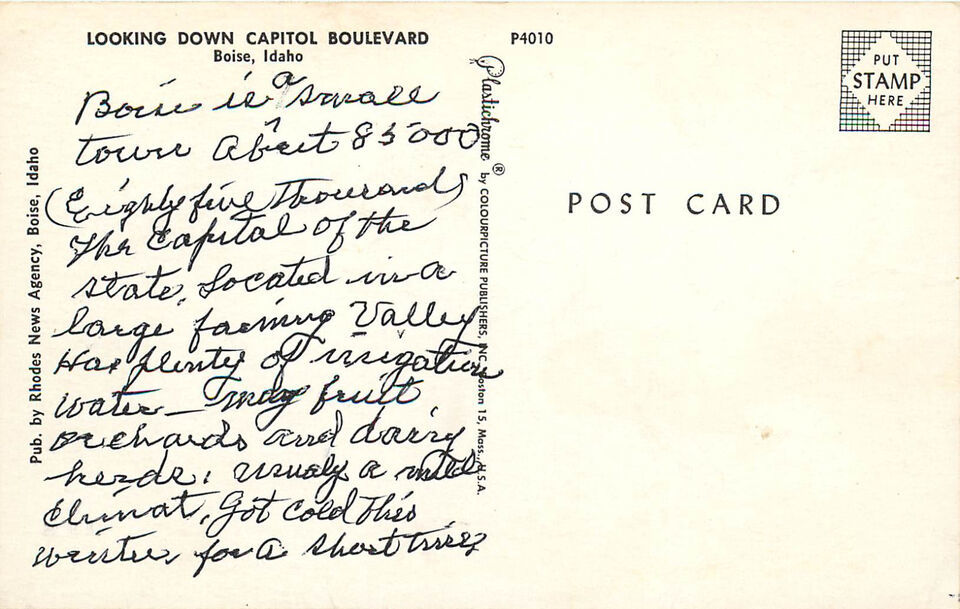 LOOKING DOWN CAPITOL BOULEVARD
Boise, Idaho
P4010
PUT
STAMP
HERE
POST CARD
Boise is a small
town About 85000
(Eighty five thousand)
The Capital of the
state, Located in a
large farming Valley
Has plenty of irrigation
water — may fruit
orchards and dairy
herds, usualy a mild
climat, Got cold this
winter for a short time
Pub. by Rhodes News Agency, Boise, Idaho
Plastichrome ® by COLOURPICTURE PUBLISHERS, INC. Boston 15, Mass., U.S.A.